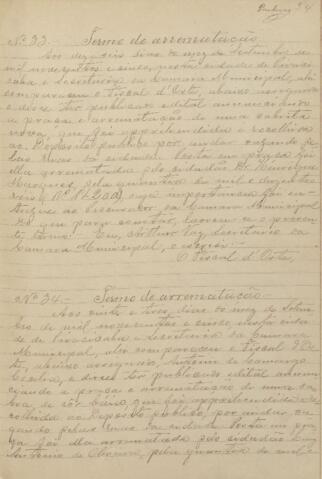 34
Nº 33. Termo de arrematação
Aos dezeseis dias do mez de Setembro de
mil novecentos e cinco, nesta cidade de Piraci-
caba e Secretaria da Camara Municipal, ahi
compareceu o Fiscal d'Este, abaixo assignado
e disse ter publicado edital annunciando
a praça e arrematação de uma cabrita
nova, que foi apprehendida e recolhida
ao Deposito publico por andar vagando pe-
las ruas da cidade. Posta em praça foi
ella arrematada pelo cidadão
Marques, pela quantia de mil e duzentos
reis (Rs. 1$200) cuja importancia foi en-
tregue ao Procurador da Camara Municipal
Do que para constar, lavrou-se o presen-
te termo. Eu, Arthur Vaz, secretario da
Camara Municipal, o escrevi.
O Fiscal d'Este,
Nº 34. Termo de arrematação
Aos vinte e tres dias do mez de Setem-
bro de mil novecentos e cinco, nesta cida-
de de Piracicaba e Secretaria da Camara
Municipal, ahi compareceu o Fiscal d'Es-
te, abaixo assignado Antonio de Camargo
e disse ter publicado edital annun-
ciando a praça e arrematação de uma ca-
bra de côr baia que foi apprehendida e re-
colhida ao Deposito publico, por andar va-
gando pelas ruas da cidade. Posta em pra-
ça foi ella arrematada pelo cidadão
Antonio de Oliveira, pela quantia de mil e